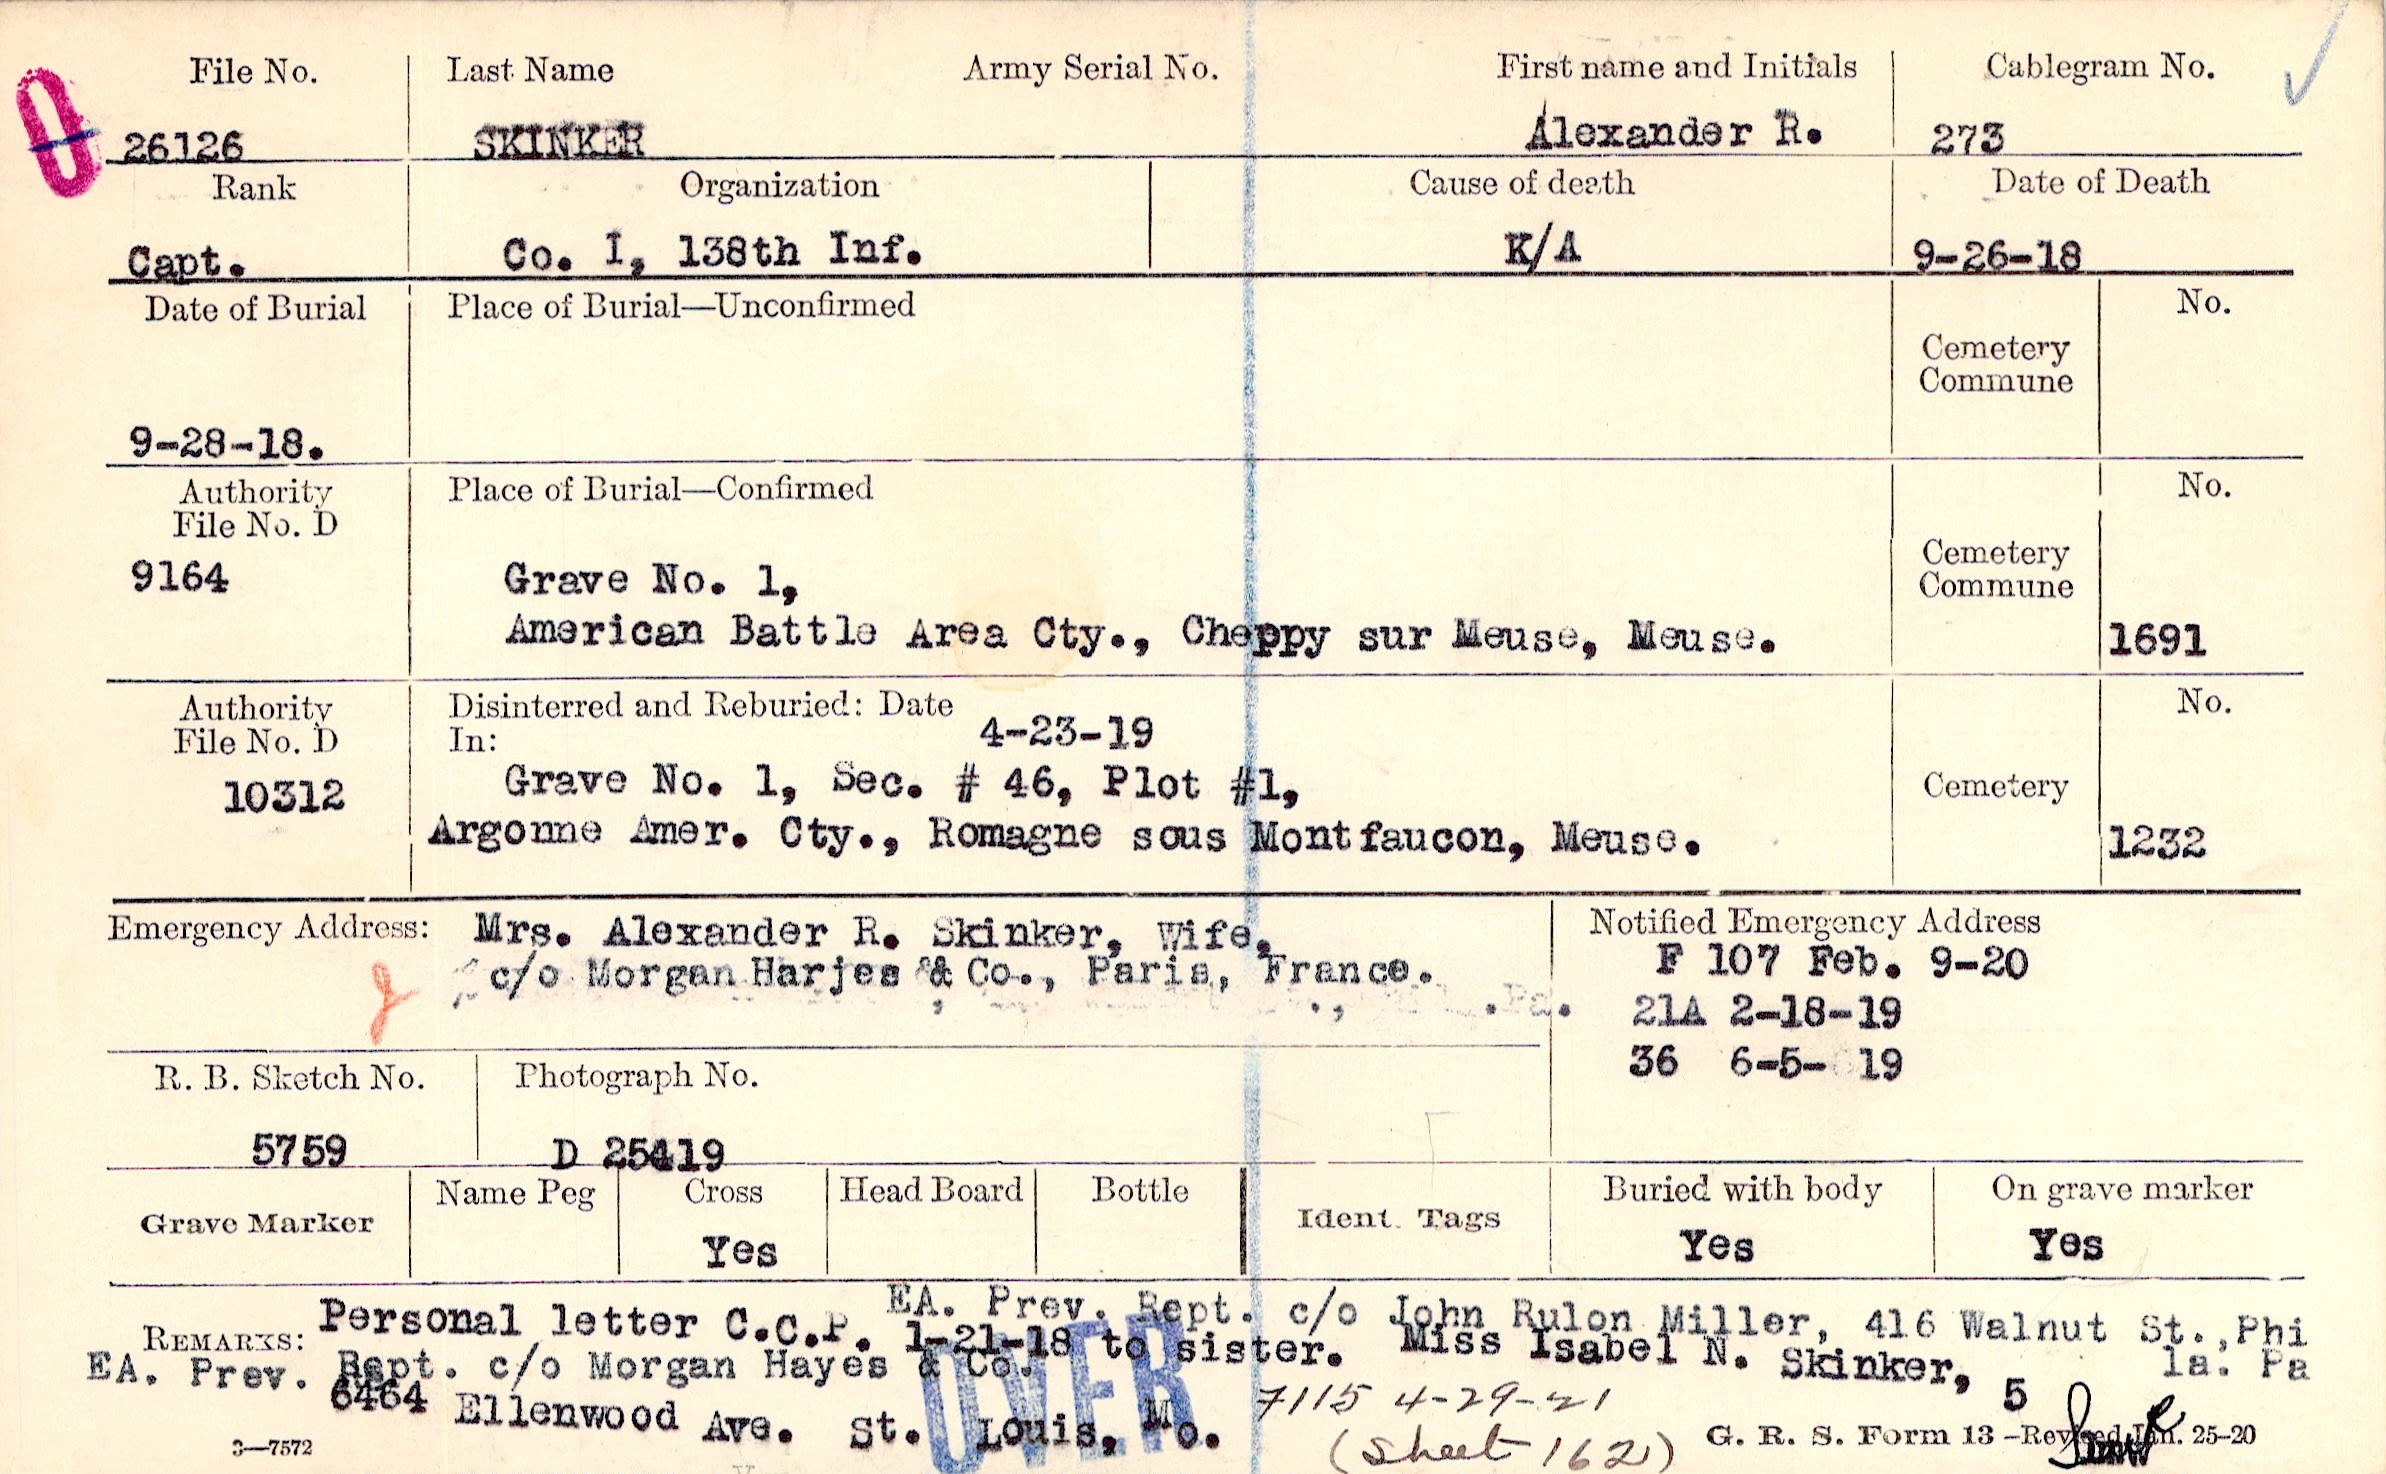 File No. Last Name Army Serial No. First name and Initials Cablegram No.
26126 SKINKER Alexander R. 273
Rank Organization Cause of death Date of Death
Capt. Co. I, 138th Inf. K/A 9-26-18
Date of Burial Place of Burial—Unconfirmed No.
Cemetery
Commune
9-28-18.
Authority Place of Burial—Confirmed No.
File No. D
Cemetery
9164 Grave No. 1, Commune
American Battle Area Cty., Cheppy sur Meuse, Meuse. 1691
Authority Disinterred and Reburied: Date No.
File No. D In: 4-23-19
10312 Grave No. 1, Sec. # 46, Plot #1, Cemetery
Argonne Amer. Cty., Romagne sous Montfaucon, Meuse. 1232
Emergency Address: Mrs. Alexander R. Skinker, Wife, Notified Emergency Address
c/o Morgan Harjes & Co., Paris, France. F 107 Feb. 9-20
.Pa. 21A 2-18-19
36 6-5- 19
R. B. Sketch No. Photograph No.
5759 D 25419
Grave Marker Name Peg Cross Head Board Bottle Ident. Tags Buried with body On grave marker
Yes Yes Yes
EA. Prev. Rept. c/o John Rulon Miller, 416 Walnut St., Phi
la. Pa
REMARKS: Personal letter C.C.P. 1-21-18 to sister. Miss Isabel N. Skinker,
EA. Prev. Rept. c/o Morgan Hayes & Co.
6464 Ellenwood Ave. St. Louis, Mo. 5
OVER
7115 4-29-21
(Sheet 162)
3—7572 G. R. S. Form 13 -Revised Jan. 25-20